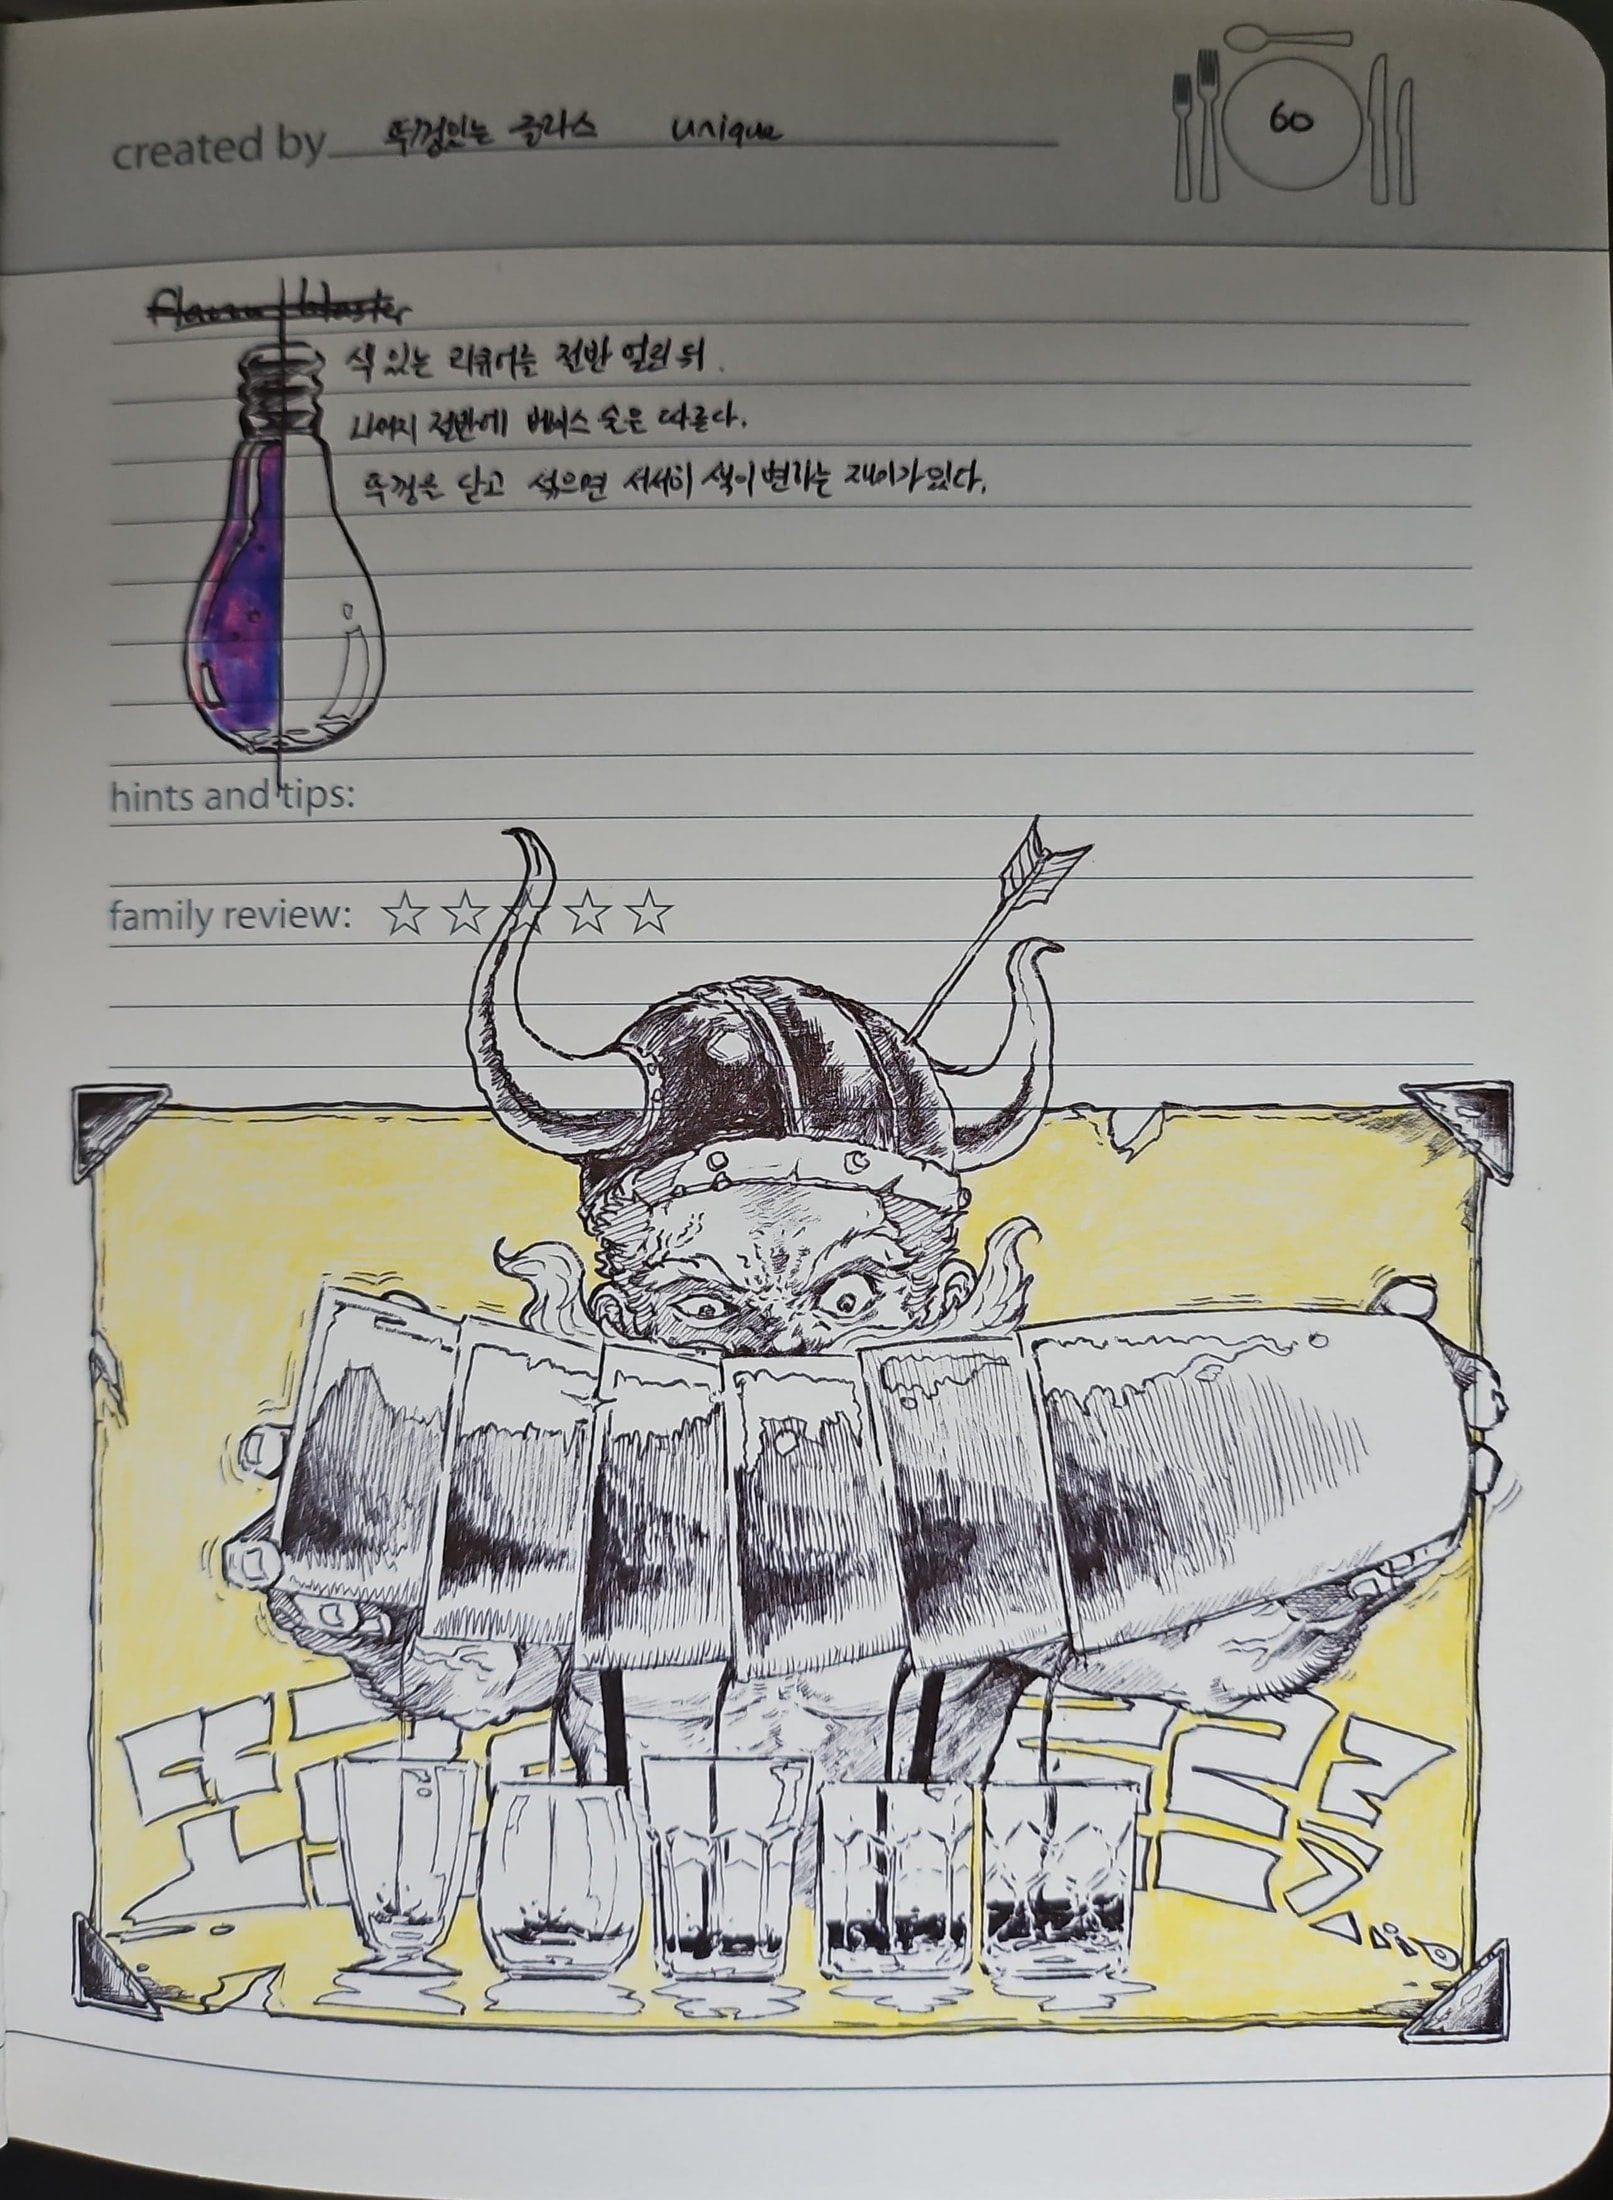 created by 뚜껑있는 글라스 unique
60
Flavour blaster
색 있는 리큐어를 절반 얼린 뒤.
나머지 절반에 베이스 술을 따른다.
뚜껑을 닫고 섞으면 서서히 색이 변하는 재미가 있다.
hints and tips:
family review: